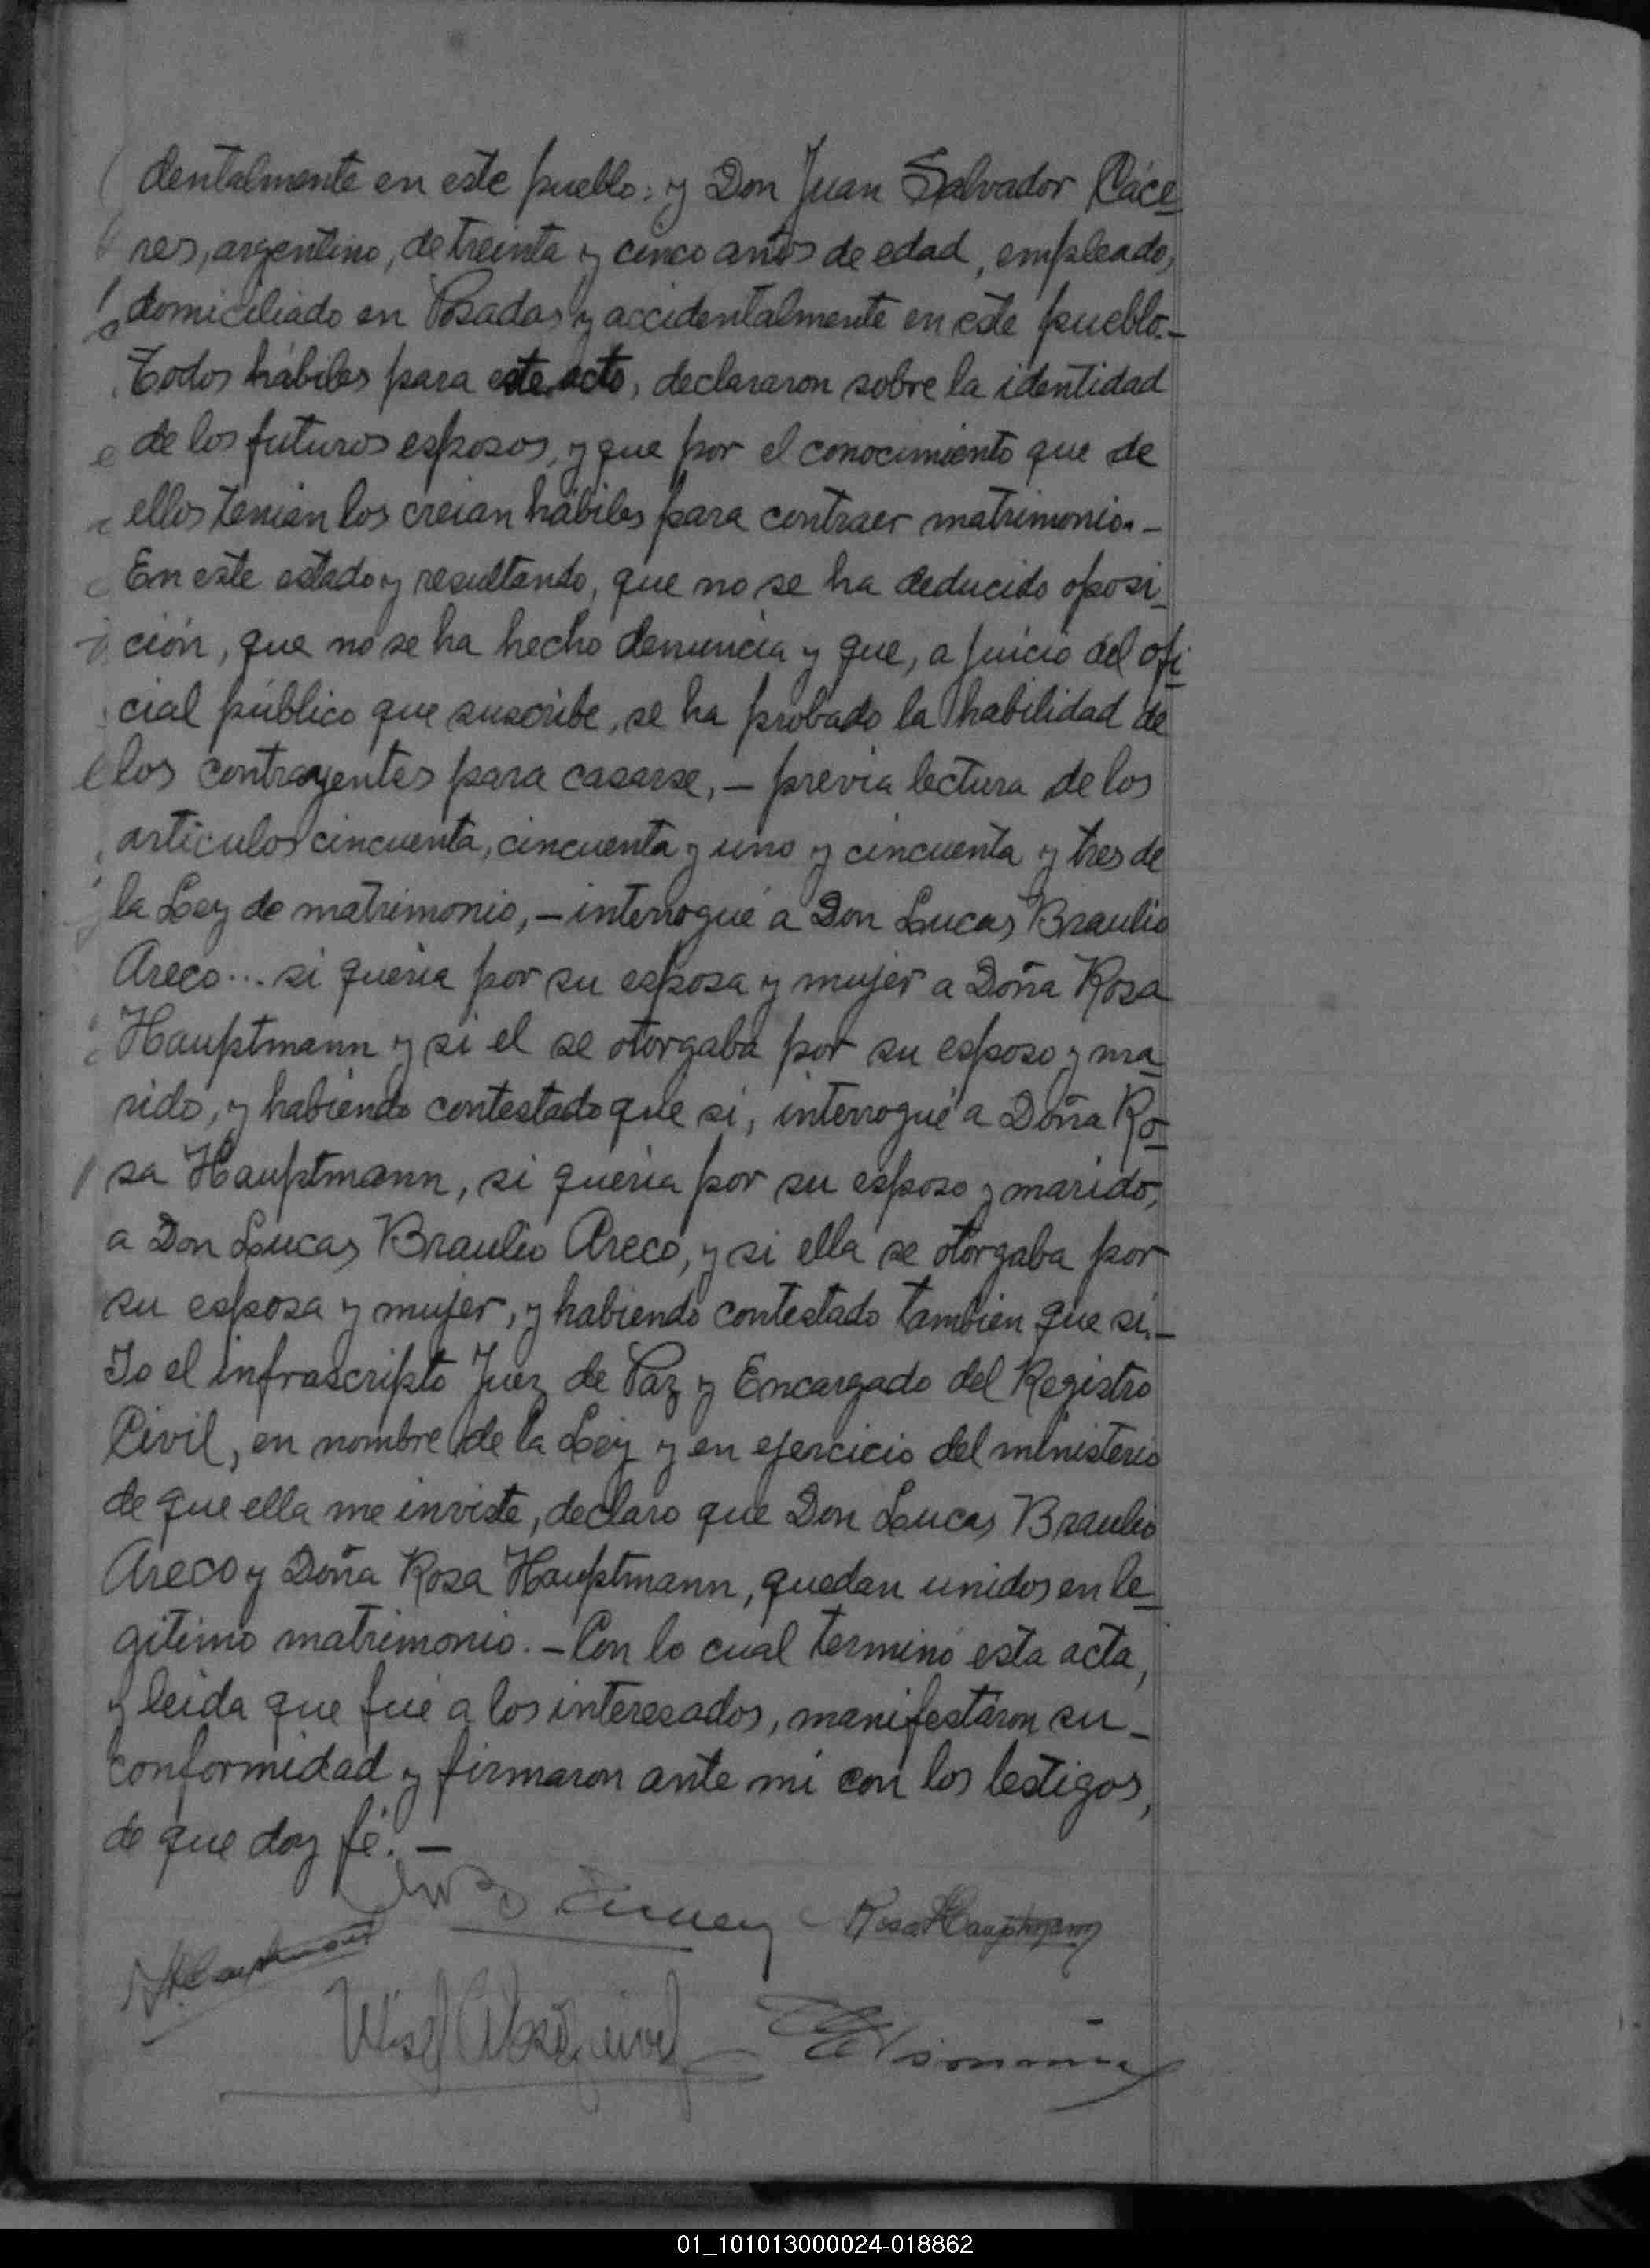 dentalmente en este pueblo; y Don Juan Salvador Cáce_
res, argentino, de treinta y cinco años de edad, empleado,
domiciliado en Posadas y accidentalmente en este pueblo.-
Todos hábiles para este acto, declararon sobre la identidad
de los futuros esposos, y que por el conocimiento que de
ellos tenian los creian hábiles para contraer matrimonio.-
En este estado y resultando, que no se ha deducido oposi_
ción, que no se ha hecho denuncia y que, a juicio del ofi_
cial público que suscribe, se ha probado la habilidad de
los contrayentes para casarse, - previa lectura de los
articulos cincuenta, cincuenta y uno y cincuenta y tres de
la Ley de matrimonio, - interrogué a Don Lucas Braulio
Areco... si queria por su esposa y mujer a Doña Rosa
Hauptmann y si el se otorgaba por su esposo y ma_
rido, y habiendo contestado que si, interrogué a Doña Ro_
sa Hauptmann, si queria por su esposo y marido,
a Don Lucas Braulio Areco, y si ella se otorgaba por
su esposa y mujer, y habiendo contestado tambien que si.-
Yo el infrascripto Juez de Paz y Encargado del Registro
Civil, en nombre de la Ley y en ejercicio del ministerio
de que ella me inviste, declaro que Don Lucas Braulio
Areco y Doña Rosa Hauptmann, quedan unidos en le_
gitimo matrimonio. - Con lo cual terminó esta acta,
y leida que fué a los interesados, manifestaron su_
conformidad y firmaron ante mi con los testigos,
de que doy fé. -
Rosa Hauptmann
Hauptmann
01_101013000024-018862